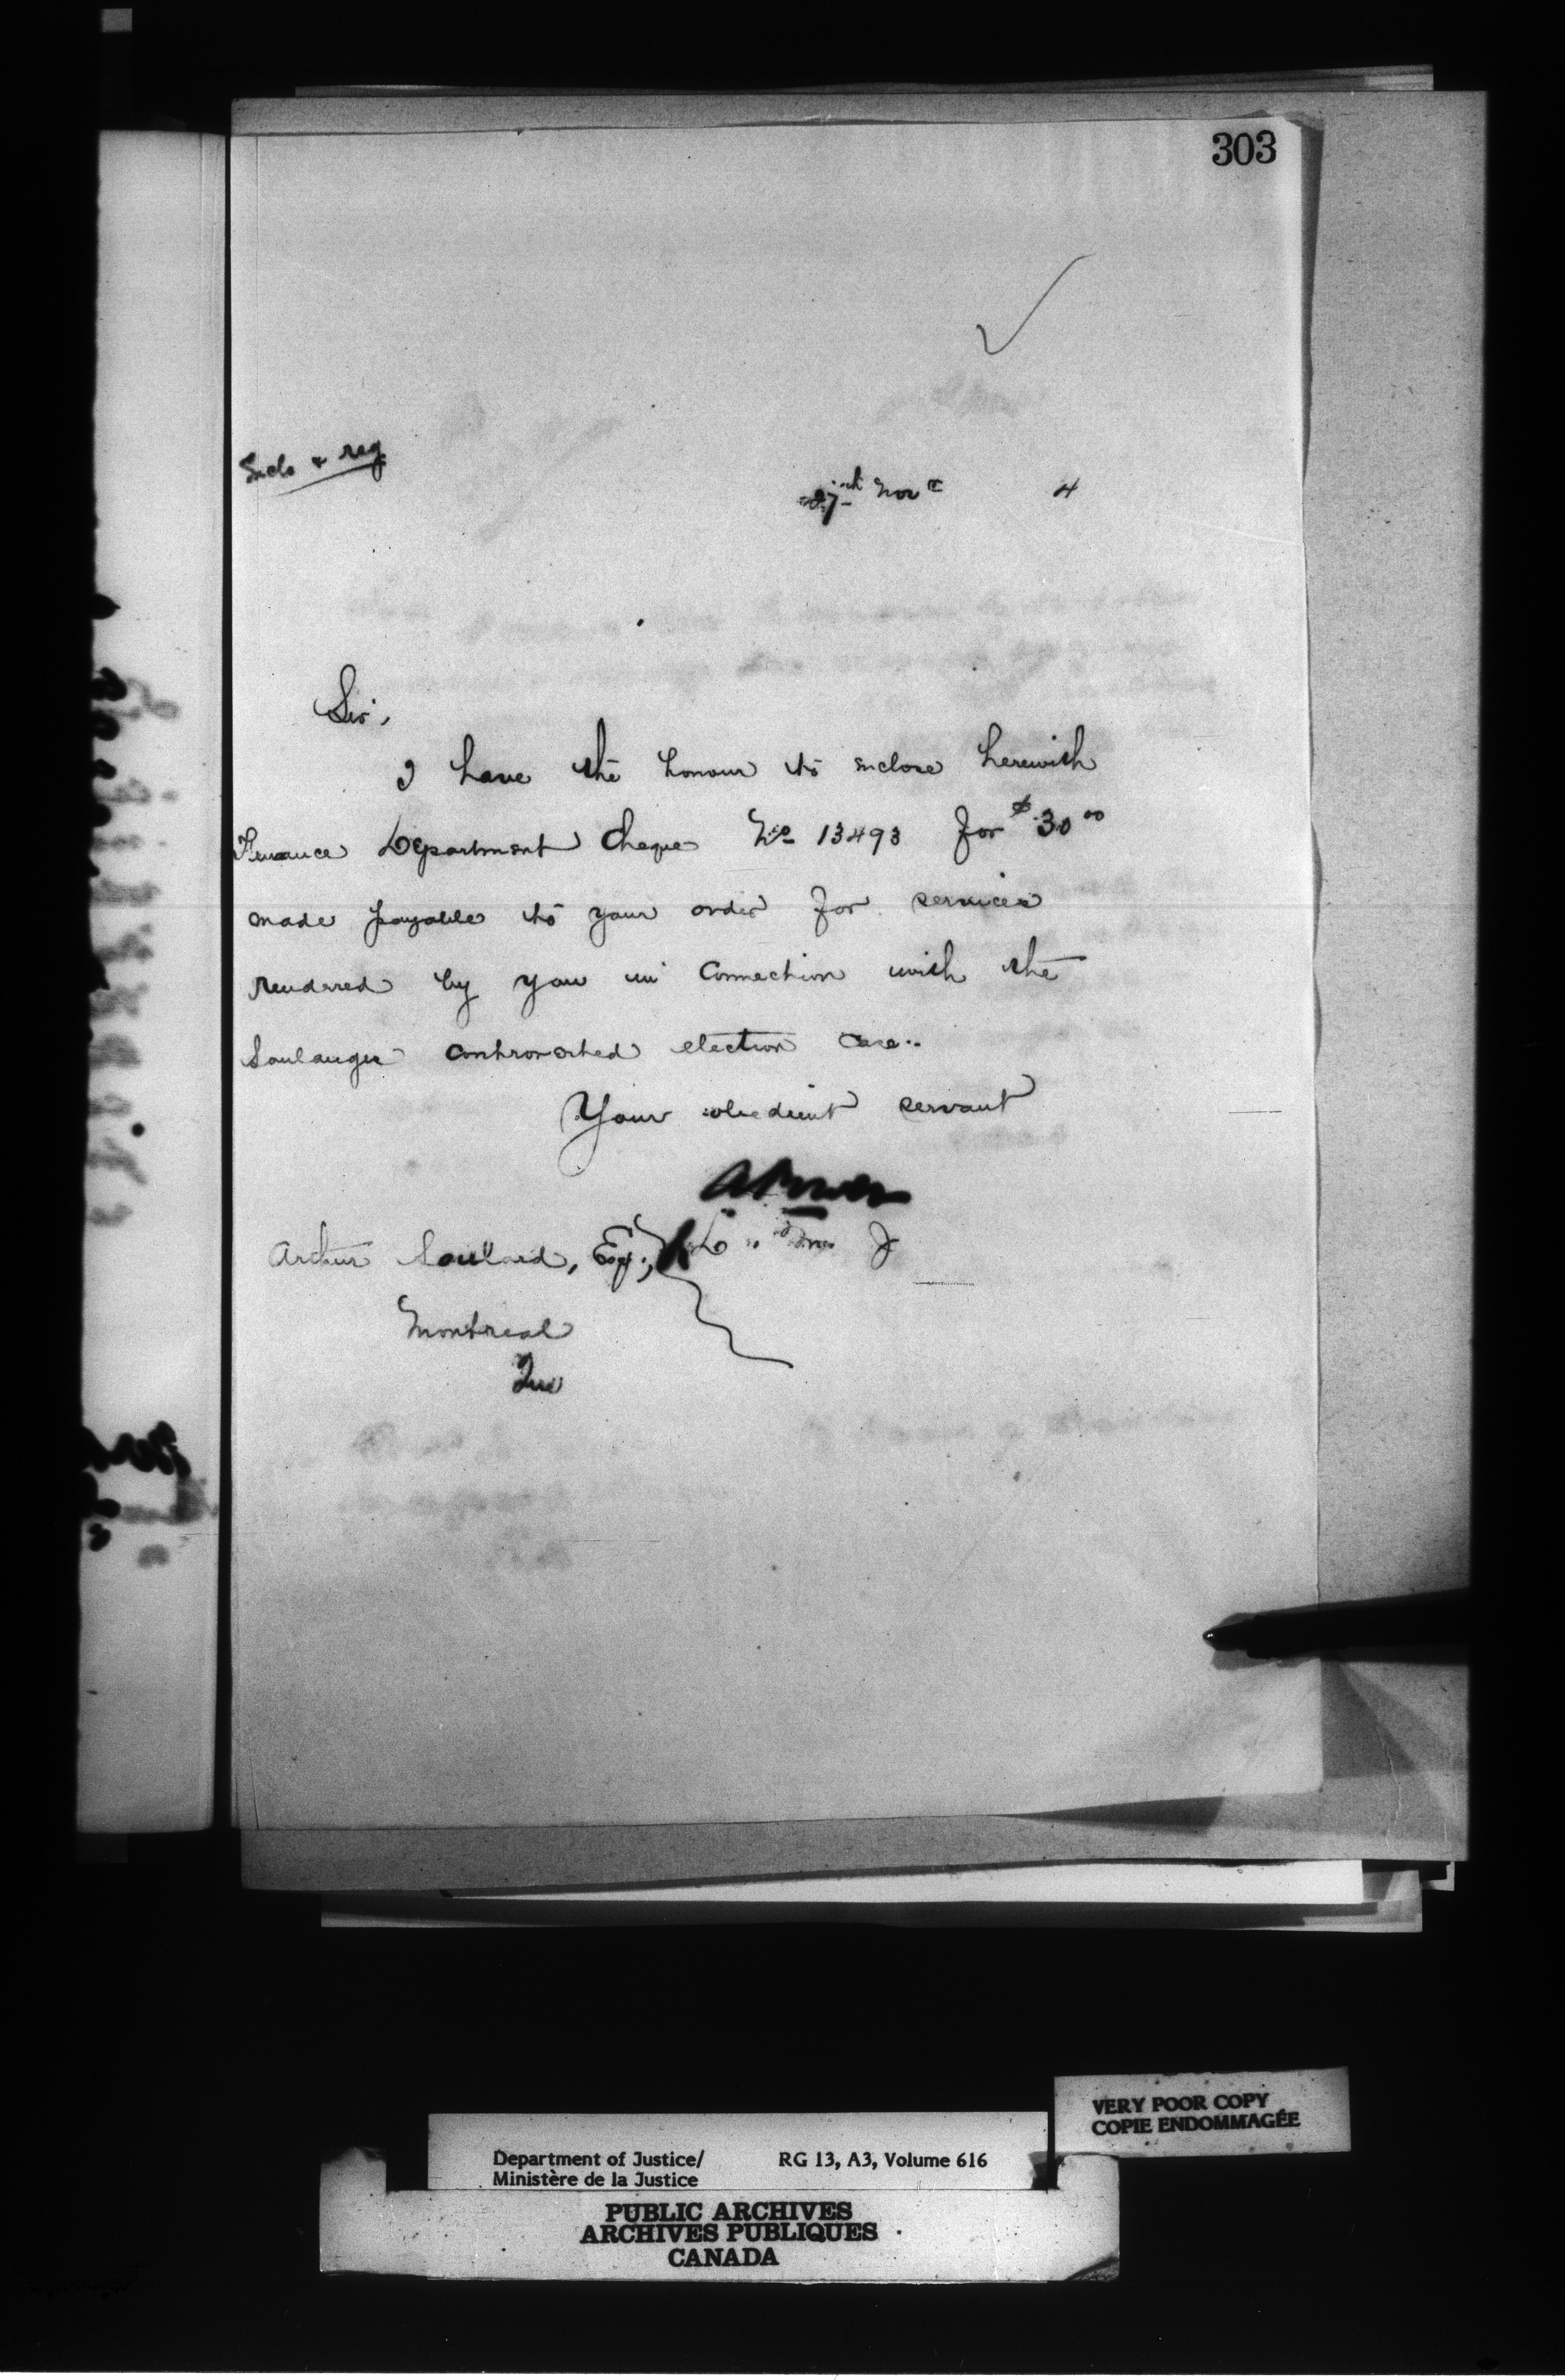 303
Inclo & reg
Nov 4
Sir,
I have the honour to inclose herewith
Finance Department Cheque No 13493 for $30 00
made payable to your order for services
rendered by you in connection with the
Soulanges controverted election case.
Your obedient servant
A Power
Arthur Soulard, Esq.,
Montreal
Que
VERY POOR COPY
COPIE ENDOMMAGÉE
Department of Justice/ RG 13, A3, Volume 616
Ministère de la Justice
PUBLIC ARCHIVES
ARCHIVES PUBLIQUES
CANADA